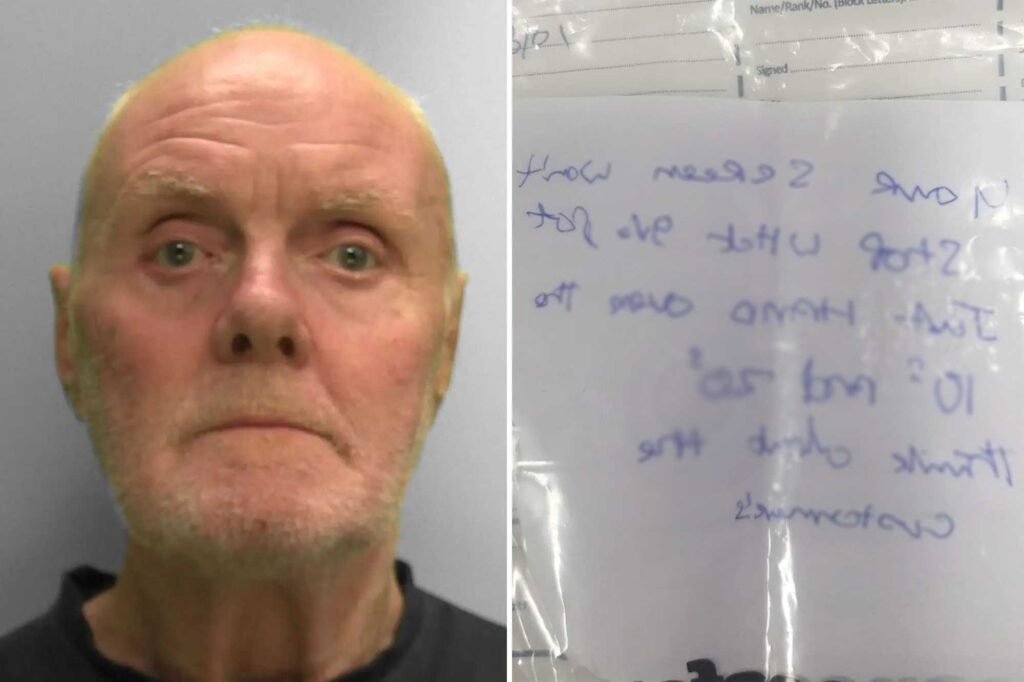 Name/Rank/No. (Block Letters)
Signed
Your Screen won't
Stop what I've got
Just Hand over the
10's and 20's
think about the
customer's